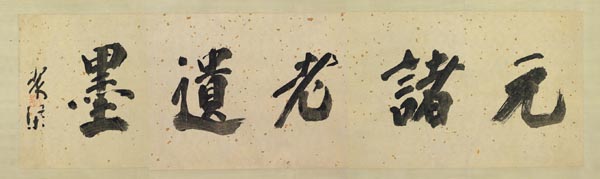 元諸老遺墨